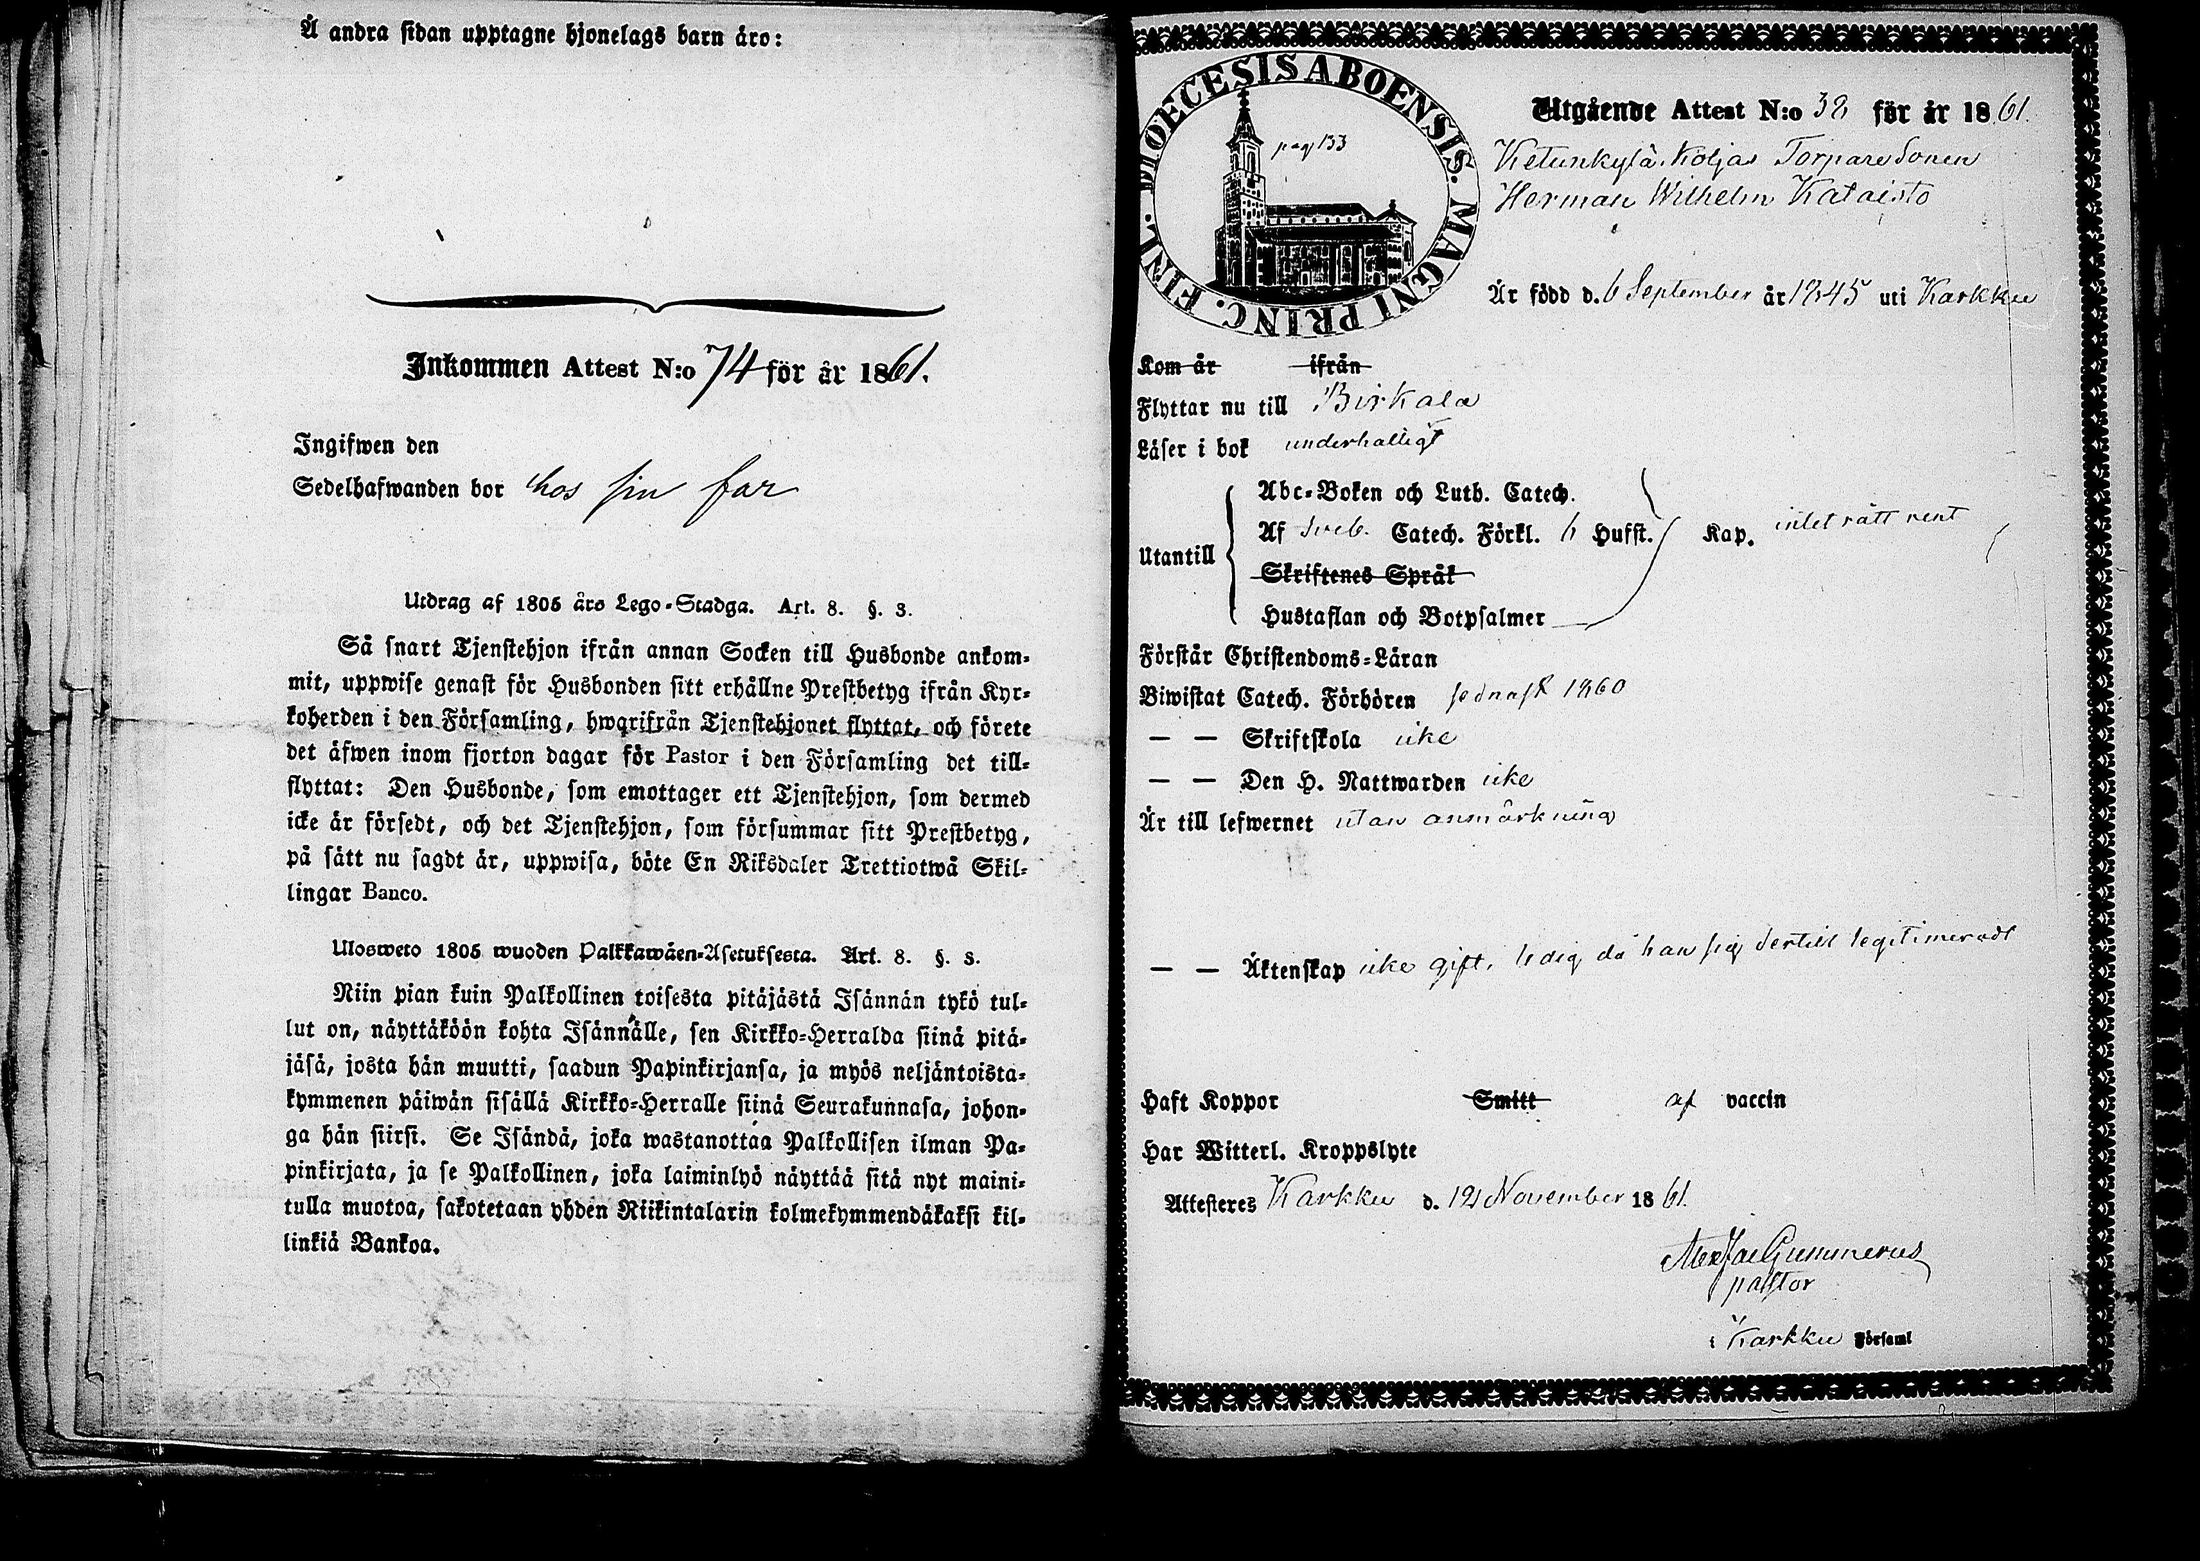 Å andra sidan upptagne hjonelags barn äro:
Inkommen Attest N:o 74 för år 1861.
Ingifwen den
Sedelhafwanden bor hos sin far
Utdrag af 1805 års Lego-Stadga. Art. 8. §. 3.
Så snart Tjenstehjon ifrån annan Socken till Husbonde ankom-
mit, uppwise genast för Husbonden sitt erhållne Prestbetyg ifrån Kyr-
koherden i den Församling, hwarifrån Tjenstehjonet flyttat, och förete
det äfwen inom fjorton dagar för Pastor i den Församling det till-
flyttat: Den Husbonde, som emottager ett Tjenstehjon, som dermed
icke är försedt, och det Tjenstehjon, som försummar sitt Prestbetyg,
på sätt nu sagdt är, uppwisa, böte En Riksdaler Trettiotwå Skil-
lingar Banco.
Ulosweto 1805 wuoden Palkkawäen-Asetuksesta. Art. 8. §. 3.
Niin pian kuin Palkollinen toisesta pitäjästä Isännän tykö tul-
lut on, näyttäköön kohta Isännälle, sen Kirkko-Herralda siinä pitä-
jäsä, josta hän muutti, saadun Papinkirjansa, ja myös neljäntoista-
kymmenen päiwän sisällä Kirkko-Herralle siinä Seurakunnasa, johon-
ga hän siirsi. Se Isändä, joka wastanottaa Palkollisen ilman Pa-
pinkirjata, ja se Palkollinen, joka laiminlyö näyttää sitä nyt maini-
tulla muotoa, sakotetaan yhden Riikintalarin kolmekymmendäkaksi kil-
linkiä Bankoa.
DIOECESIS ABOENSIS. MAGNI PRINC. FINL.
pag 133
Utgående Attest N:o 38 för år 1861.
Ketunkylä Koljas Torpare Sonen
Herman Wilhelm Kataisto
Är född d. 6 September år 1845 uti Karkku
Kom år ifrån
Flyttar nu till Birkala
Läser i bok underhalligt
Utantill
Abc-Boken och Luth. Catech.
Af Sveb. Catech. Förkl. 6 Hufst. Kap. intet rätt rent
Skriftenes Språk
Hustaflan och Botpsalmer
Förstår Christendoms-Läran
Biwistat Catech. Förhören sednast 1860
— — Skriftskola icke
— — Den H. Nattwarden icke
Är till lefwernet utan anmärkning
— — Äktenskap icke gift, ledig då han sig dertill legitimeradt
Haft Koppor Smitt af vaccin
Har Witterl. Kroppslyte
Attesteres Karkku d. 12 November 1861.
Gummerus
pastor
i Karkku Församl